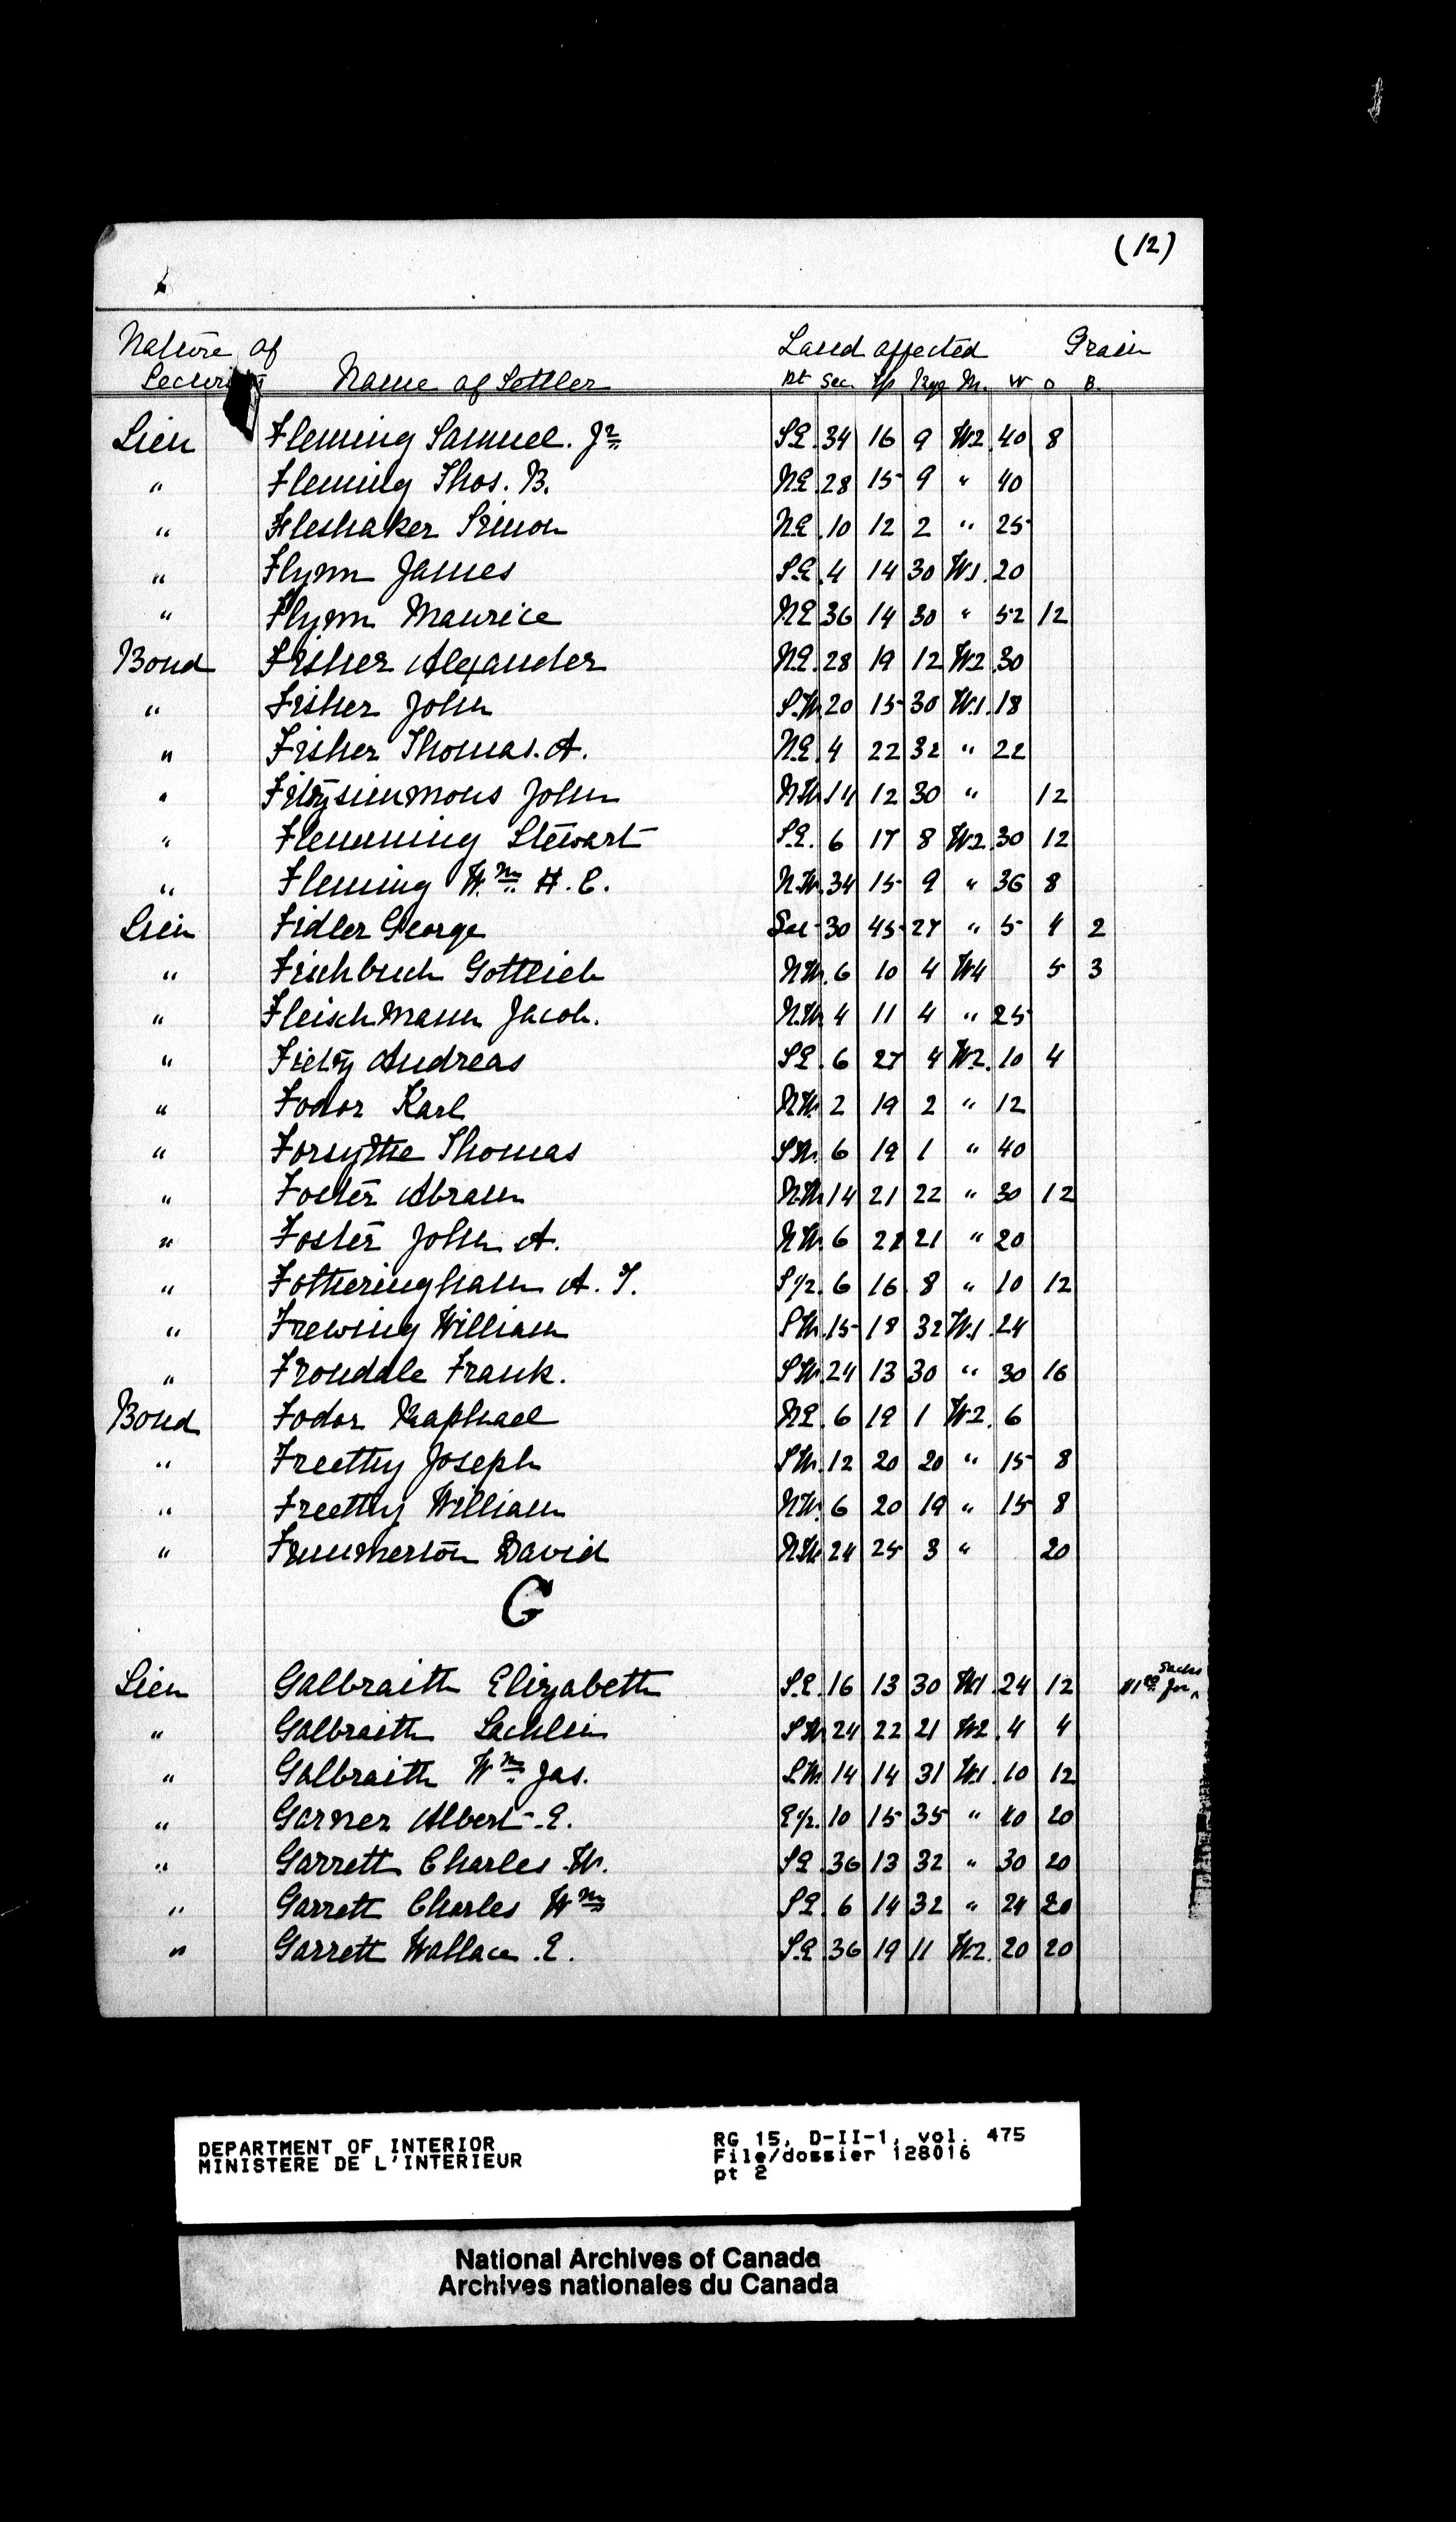 (12)
Nature of Land affected Grain
Security Name of Settler Pt Sec. Tp Rge M. W O B.
Lien Fleming Samuel. Jr S.E. 34 16 9 W2 40 8
" Fleming Thos. B. N.E. 28 15 9 " 40
" Fleshaker Simon N.E. 10 12 2 " 25
" Flynn James S.E. 4 14 30 W1. 20
" Flynn Maurice N.E. 36 14 30 " 52 12
Bond Fisher Alexander N.E. 28 19 12 W2 30
" Fisher John S.W. 20 15 30 W.1. 18
" Fisher Thomas. A. N.E. 4 22 32 " 22
" Fitzsimmons John N.W. 14 12 30 " 12
" Flemming Stewart S.E. 6 17 8 W2. 30 12
" Fleming Wm. H. C. N.W. 34 15 9 " 36 8
Lien Fidler George 30 45 27 " 5 4 2
" Fischbuch Gottlieb N.W. 6 10 4 W4 5 3
" Fleischmann Jacob. N.W. 4 11 4 " 25
" Andreas S.E. 6 27 4 W2. 10 4
" Fodor Karl N.W. 2 19 2 " 12
" Forsythe Thomas S.W. 6 19 1 " 40
" Foster Abram N.W. 14 21 22 " 30 12
" Foster John A. N.W. 6 21 " 20
" Fotheringham A. T. S 1/2. 6 16 8 " 10 12
" Frewing William S.W. 15 18 32 W.1 24
" Frondale Frank. S.W. 24 13 30 " 30 16
Bond Fodor Raphael N.E. 6 19 1 W2. 6
" Freethy Joseph S.W. 12 20 20 " 15 8
" Freethy William N.W. 6 20 19 " 15 8
" David N.W. 24 25 3 " 20
G
Lien Galbraith Elizabeth S.E. 16 13 30 W1 24 12 Sacks
" Galbraith Lachlin S.W. 24 22 21 W2 4 4
" Galbraith Wm. Jas. S.W. 14 14 31 W.1. 10 12
" Garner Albert E. E 1/2. 10 15 35 " 40 20
" Garrett Charles W. S.E. 36 13 32 " 30 20
" Garrett Charles Wm S.E. 6 14 32 " 24 20
" Garrett Wallace E. S.E. 36 19 11 W.2. 20 20
DEPARTMENT OF INTERIOR RG 15, D-II-1, vol. 475
MINISTERE DE L'INTERIEUR File/dossier 128016
pt 2
National Archives of Canada
Archives nationales du Canada